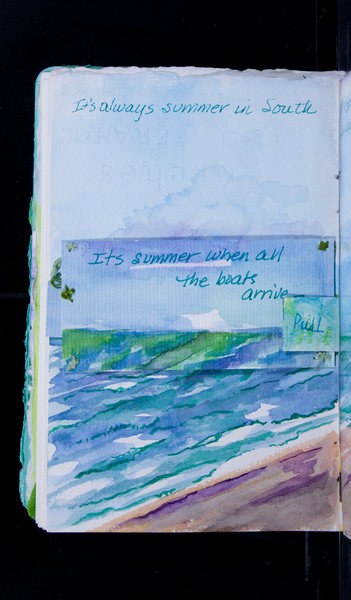 It's always summer in South
It's summer when all
the boats
arrive
Pull